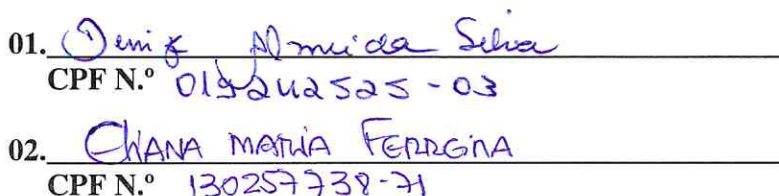 01. Deniz Almeida Silva
CPF N.º 019242525-03
02. EliANA MARIA FERREIRA
CPF N.º 130257738-71